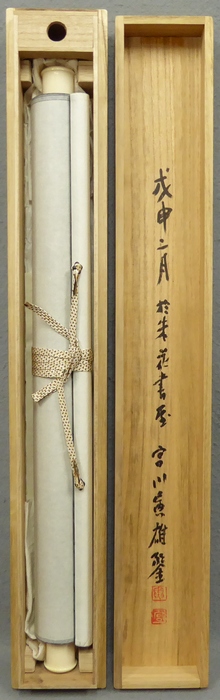 戊申二月 於朱花書屋 宮川寅雄鑒